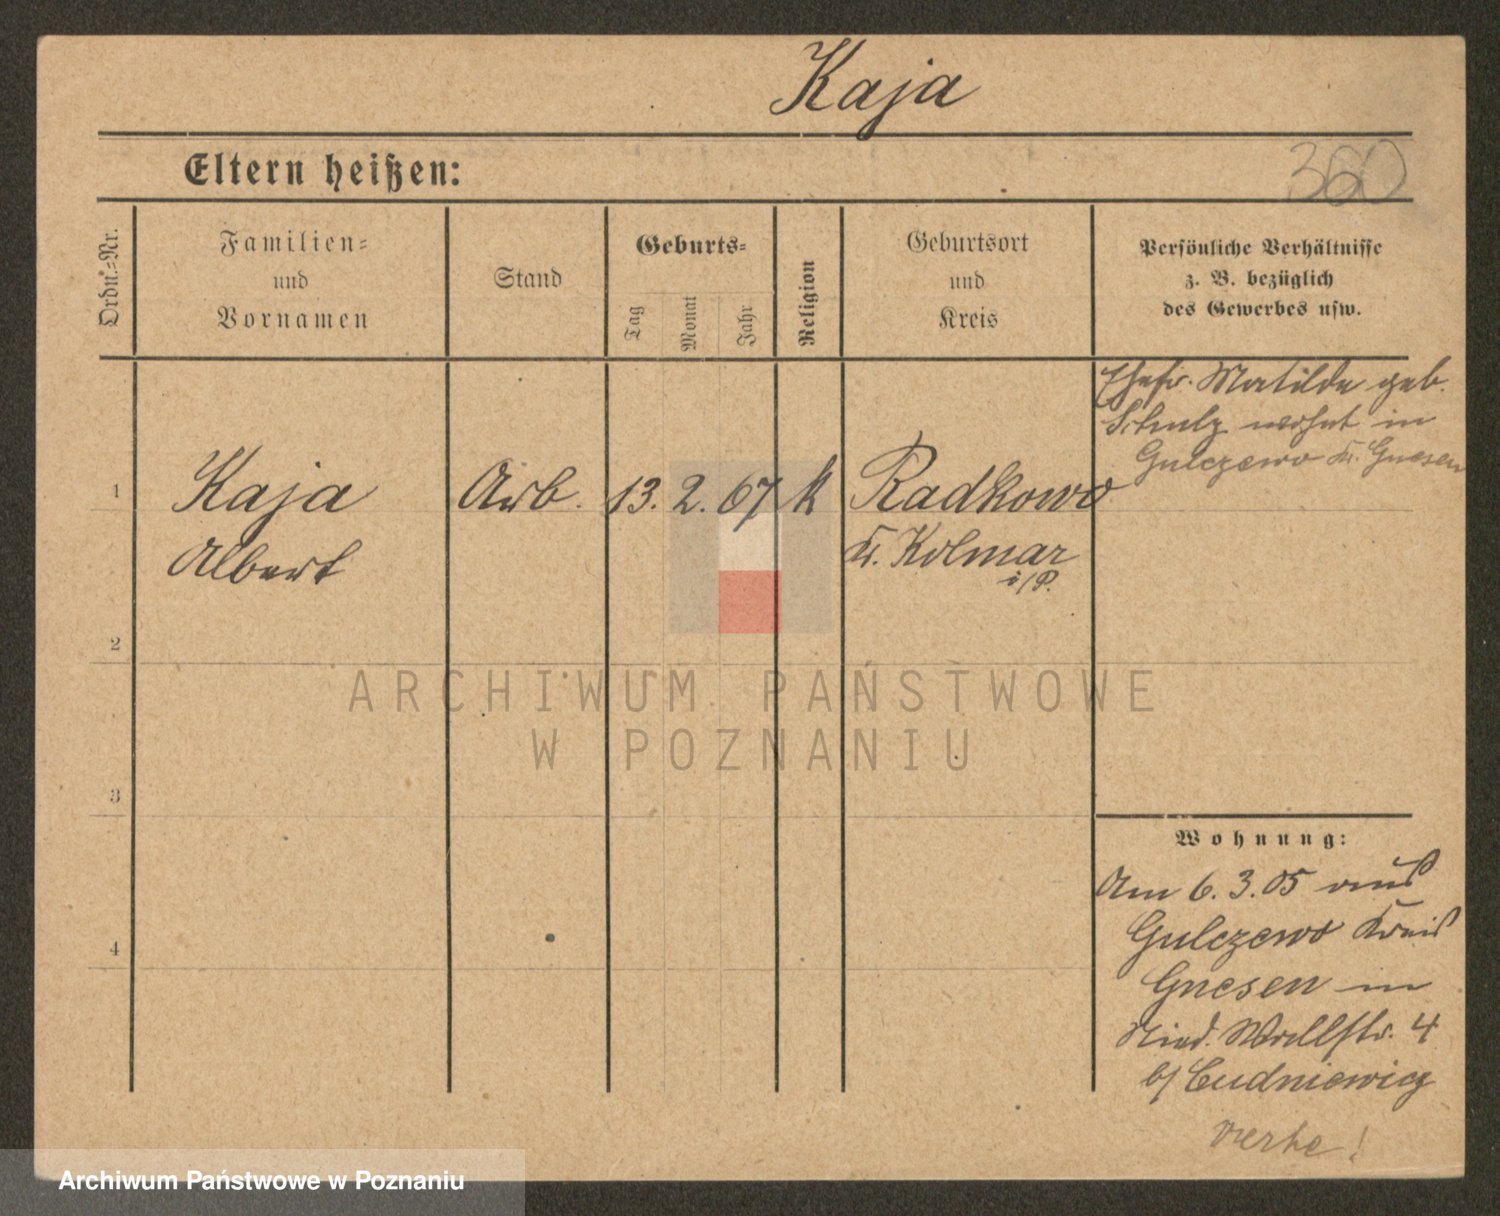 Kaja
Eltern heißen:
360
Ordn.-Nr.
Familien-
und
Vornamen
Stand
Geburts-
Tag
Monat
Jahr
Religion
Geburtsort
und
Kreis
Persönliche Verhältnisse
z. B. bezüglich
des Gewerbes usw.
Ehefr. Matilde geb.
Schulz wohnt in
Gulczewo Kr. Gnesen
1
Kaja
Albert
Arb.
13. 2. 67
k
Radkowo
Kr. Kolmar
i/P.
2
3
4
Wohnung:
Am 6. 3. 05 aus
Gulczewo Kreis
Gnesen in
Nied. Wallstr. 4
b/ Cudniewicz
ARCHIWUM PAŃSTWOWE
W POZNANIU
Archiwum Państwowe w Poznaniu